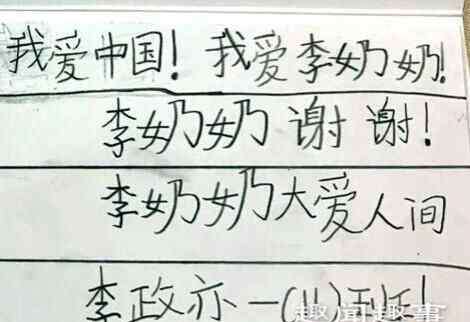 我爱中国! 我爱李奶奶!
李奶奶谢谢!
李奶奶大爱人间
李政亦一(11)班!
趣闻趣事